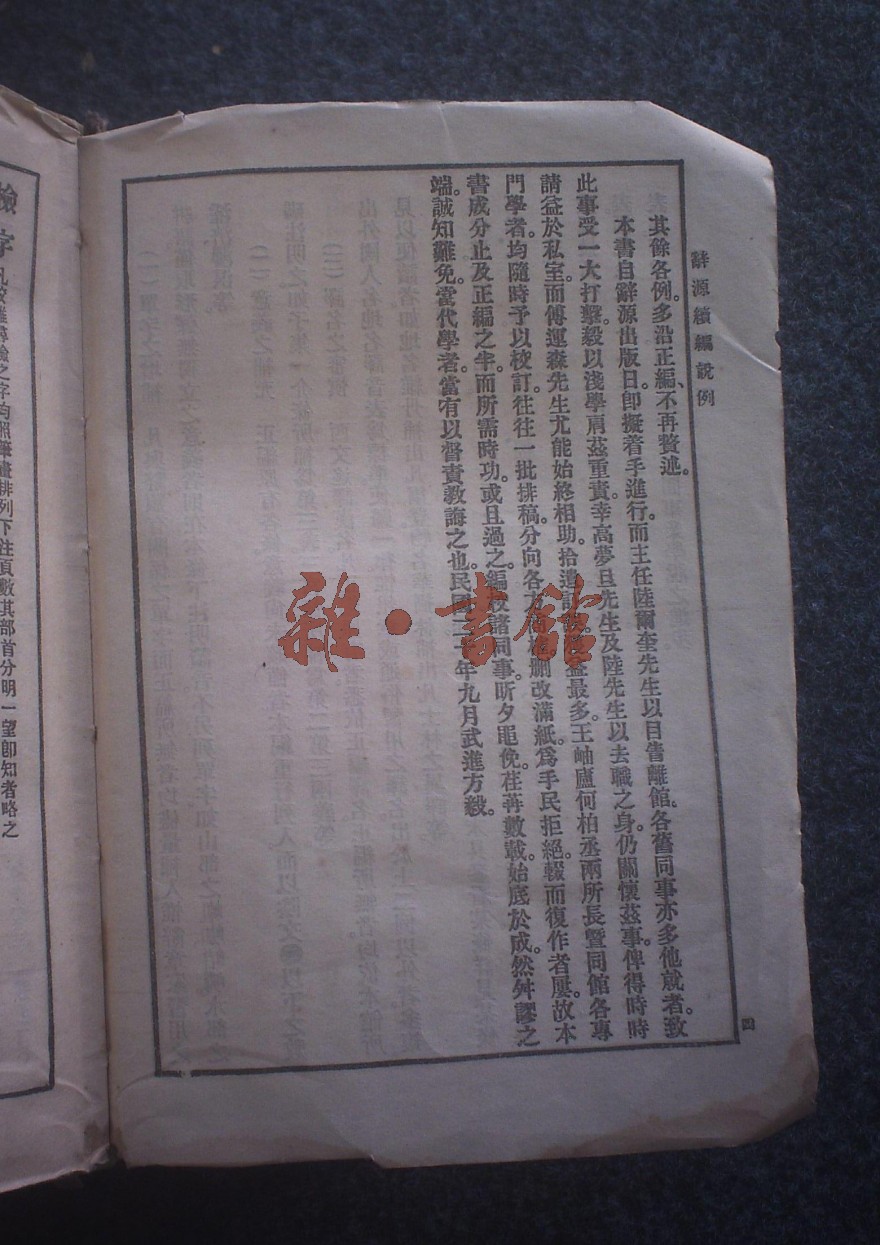 辭源續編說例
其餘各例。多沿正編、不再贅述。
本書自辭源出版日、卽擬着手進行。而主任陸爾奎先生以目眚離館。各舊同事亦多他就者。致
此事受一大打擊。毅以淺學肩茲重責。幸高夢旦先生及陸先生以去職之身。仍關懷茲事。俾得時時
請益於私室。而傅運森先生尤能始終相助。拾遺訂 益最多。王岫廬何柏丞兩所長暨同館各專
門學者。均隨時予以校訂。往往一批排稿。分向各方 删改滿紙。爲手民拒絕。輟而復作者屢。故本
書成分止及正編之半。而所需時功。或且過之。編校諸同事。昕夕黽俛。荏苒數載。始底於成。然舛謬之
端。誠知難免。當代學者。當有以督責教誨之也。民國二十年九月武進方毅。
四
檢字
凡較難尋檢之字均照筆畫排列下注頁數其部首分明一望卽知者略之
雜·書館